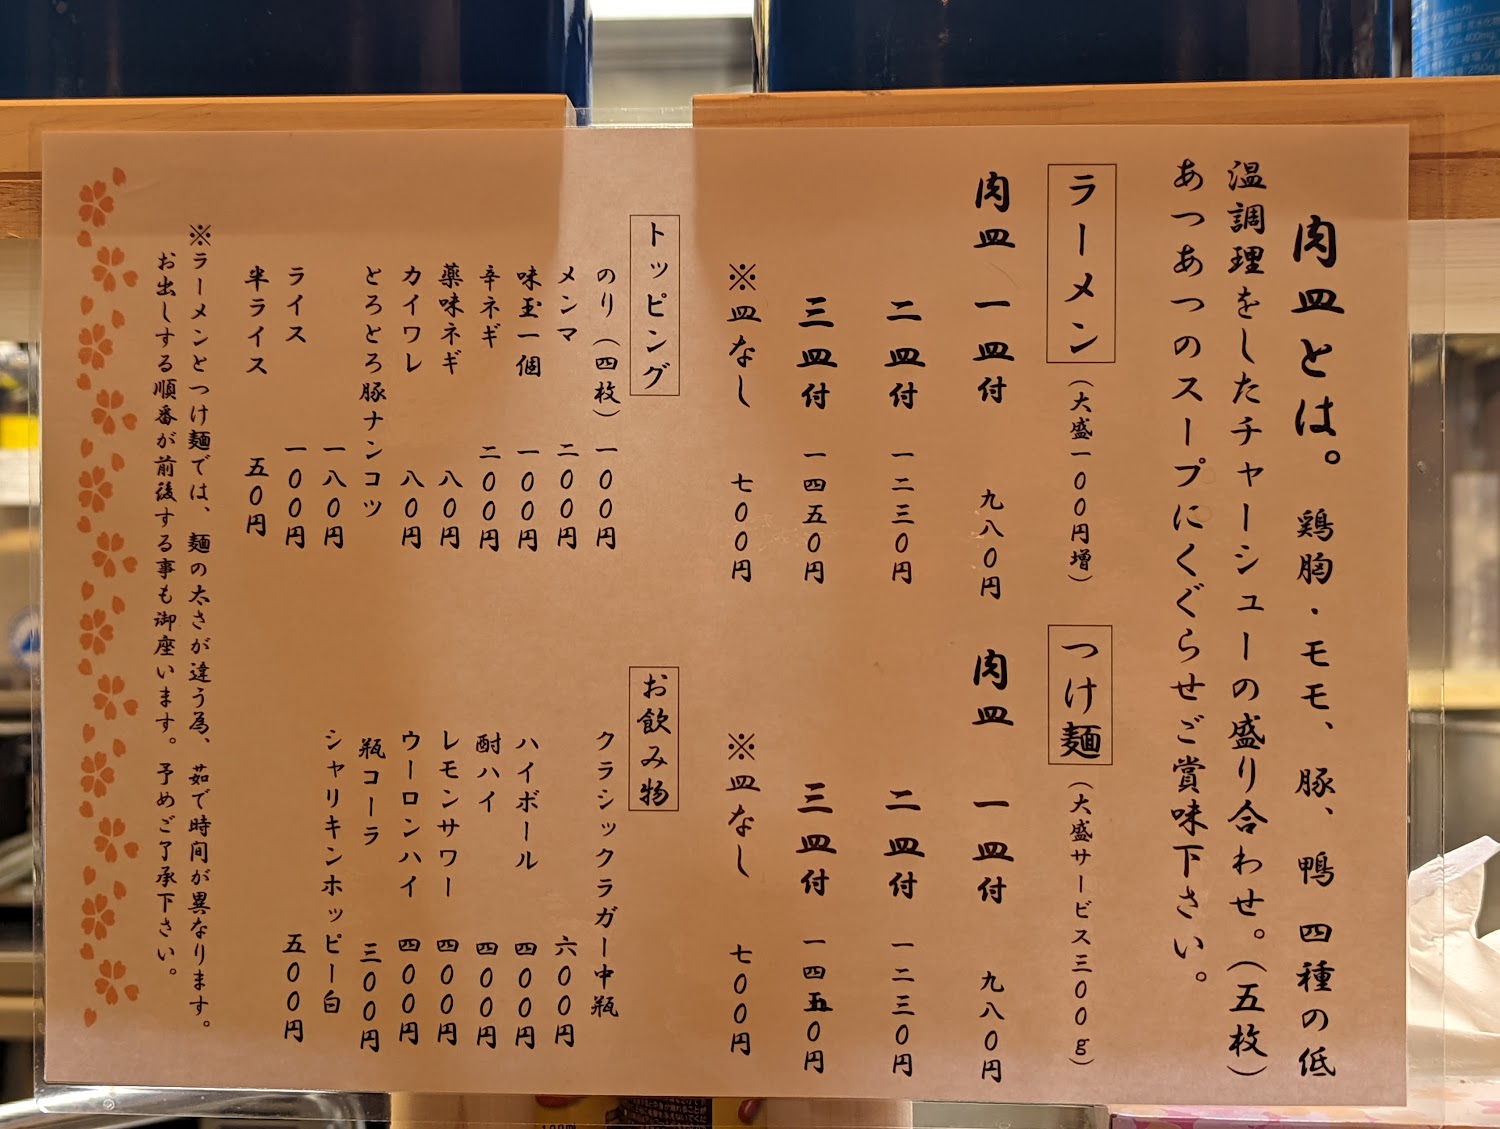 肉皿とは。鶏胸・モモ、豚、鴨 四種の低
温調理をしたチャーシューの盛り合わせ。(五枚)
あつあつのスープにくぐらせご賞味下さい。
ラーメン (大盛一00円増)
肉皿 一皿付 九八0円
二皿付 一二三0円
三皿付 一四五0円
※皿なし 七00円
つけ麺 (大盛サービス三00g)
肉皿 一皿付 九八0円
二皿付 一二三0円
三皿付 一四五0円
※皿なし 七00円
トッピング
のり(四枚) 一00円
メンマ 二00円
味玉一個 一00円
辛ネギ 二00円
薬味ネギ 八0円
カイワレ 八0円
とろとろ豚ナンコツ
一八0円
ライス 一00円
半ライス 五0円
お飲み物
クラシックラガー中瓶
六00円
ハイボール 四00円
酎ハイ 四00円
レモンサワー 四00円
ウーロンハイ 四00円
瓶コーラ 三00円
シャリキンホッピー白
五00円
※ラーメンとつけ麺では、麺の太さが違う為、茹で時間が異なります。
お出しする順番が前後する事も御座います。予めご了承下さい。